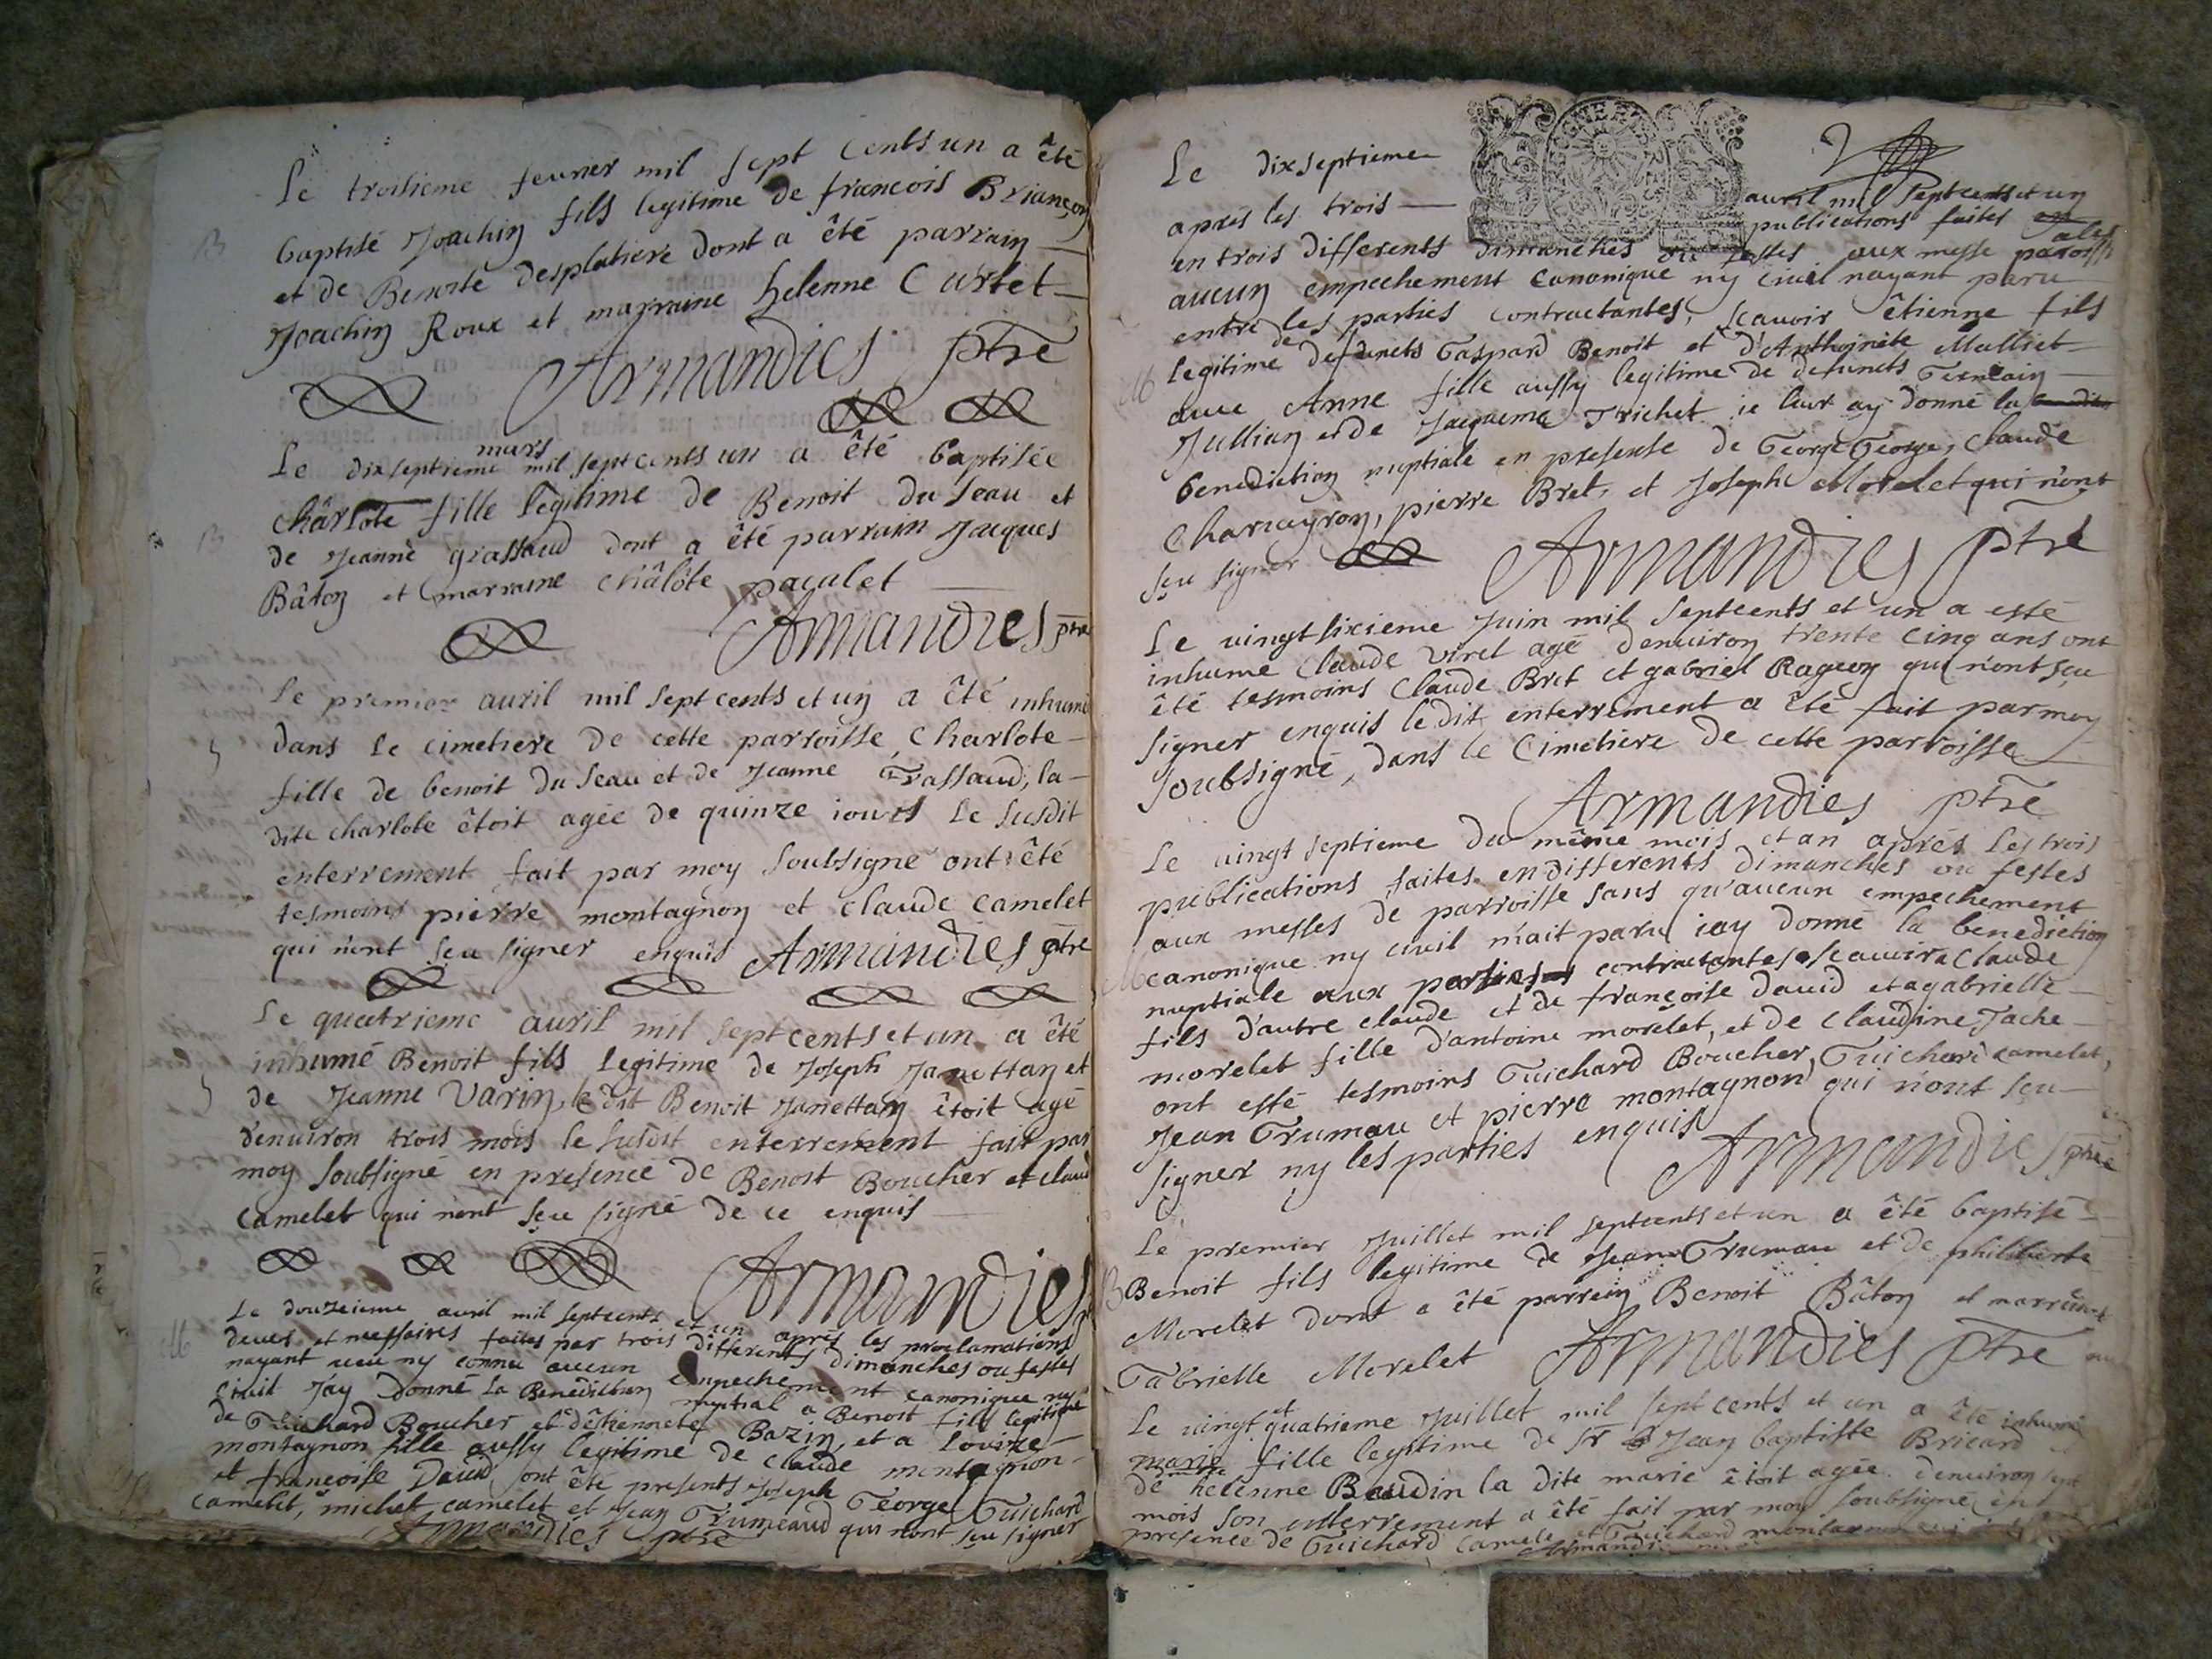 Le troisieme feurier mil sept cents un a êté
baptisé Joachin fils legitime de francois Briançon
et de Benoite desplatiere dont a êté parrain
Joachin Roux et marraine helenne Curtet
Armandies ptre
mars
Le dixseptieme mil sept cents un a êté baptisée
chârlote fille legitime de Benoit du Seau et
de Jeanne grassaud dont a êté parrain Jacques
Bâton et marraine châlôte pacalet
Armandies ptre
Le premier auril mil sept cents et un a êté inhumé
dans le cimetiere de cette parroisse Charlote
fille de benoit du Seau et de Jeanne Grassaud, la
dite charlote êtoit agée de quinze iours le susdit
enterrement fait par moy soubsigné ont êté
tesmoins pierre montagnon et claude camelet
qui n'ont sçu signer enquis Armandies ptre
Le quatrieme auril mil sept cents et un a êté
inhumé Benoit fils legitime de Joseph Janettan et
de Jeanne Varin, le dit Benoit Janettan êtoit agé
d'enuiron trois mois le susdit enterrement fait par
moy soubsigné en presence de Benoit Boucher et claud
camelet qui n'ont sçu signé de ce enquis
Armandies
Le douzeieme auril mil septcents et un aprés les proclamations
deues et nessaires faites par trois differents dimanches ou festes
nayant ueu ny connu aucun empechement canonique ny
ciuil J'ay donné la Benediction nuptial a Benoit fils legitime
de Guichard Boucher et d'êtiennete Bazin, et a Louize
montagnon fille aussy legitime de claude montagnon
et francoise Dauid, ont êté presents Joseph George Guichard
camelet, michel camelet et Jean Trumeaud qui n'ont sçu signer
Armandies ptre
Le dixseptieme auril mil septcents et un
aprés les trois publications faites
en trois differents dimanches ou festes aux messe paroissiales
aucun empechement canonique ny ciuil nayant paru
entre les parties contractantes, scauoir êtienne fils
legitime de defuncts Gaspard Benoit et d'Anthoinete Malliet
auec Anne fille aussy legitime de defuncts Germain
Jullian et de Jacquema Trichet ie leur ay donné la
benediction nuptiale en presense de George George, claude
Charuayron, pierre Bret, et Joseph Morelet qui n'ont
sçu signer Armandies ptre
Le uingt sixieme Juin mil septcents et un a esté
inhumé Claude Viret agé d'enuiron trente cinq ans ont
êté tesmoins Claude Bret et gabriel Ragueon qui n'ont sçu
signer enquis le dit enterrement a êté fait par moy
soubsigné, dans le Cimetiere de cette parroisse
Armandies ptre
Le uingt septieme du même mois et an aprés les trois
publications faites en differents dimanches ou festes
aux messes de parroisse sans qu'aucun empechement
canonique ny ciuil n'ait paru iay donné la benediction
nuptiale aux parties contractantes scauoir a Claude
fils d'autre claude et de françoise dauid et a gabrielle
morelet fille d'antoine morelet, et de claudine Jache
ont esté tesmoins Guichard Boucher, Guichard camelet,
Jean Trumau et pierre montagnon qui n'ont sçu
signer ny les parties enquis
Armandies ptre
Le premier Juillet mil septcents et un a êté baptisé
Benoit fils legitime de Jean Trumau et de philiberte
Morelet dont a êté parrein Benoit Bâton et marraine
Gabrielle Morelet Armandies ptre
Le uingt et quatrieme Juillet mil sept cents et un a êté inhumé
marie fille legitime de Sr Jean baptiste Bricard
de helenne Baudin la dite marie êtoit agée d'enuiron sept
mois son enterrement a êté fait par moy soubsigné en
presence de Guichard Camelet et Guichard montagnon
Armandies